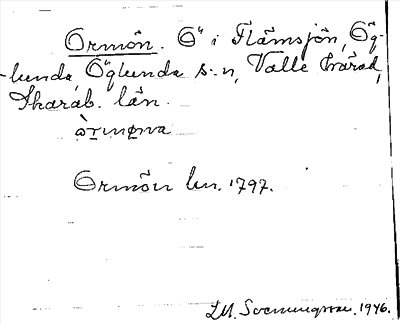 Ormön. Ö i Flämsjön, Ög-
-lunda, Öglunda s:n, Valle härad,
Skarab. län.
Ormön lm. 1797.
L.M. Svenungsson. 1946.